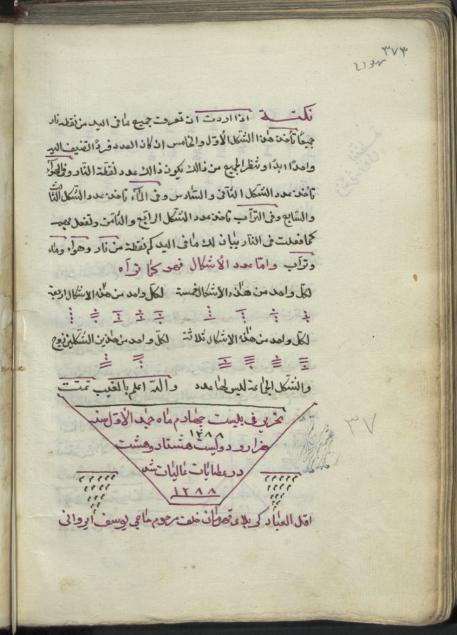 ٣٧٣
نكتة اذا اردت ان تعرف جميع ما فى اليد من نقطه نار
جميعًا تأخذ هذا الشكل الاول والخامس ان كان العدد فردًا تضيف اليه
واحدًا ابدًا وتنظر الجميع من ذالك يكون ذالك عدد نقطة النار وفى الهواء
تاخذ عدد الشكل الثانى والسّادس وفى المآء تاخذ عدد الشكل الثالث
والسّابع وفى الترآب تاخذ عدد الشكل الرابع والثّامن وتفعل
كما فعلت فى النار بيان لك ما فى اليد كم نقطة من نار وهوآء ومآء
وترآب وامّا عدد الاشكال فهو كما ترآه
لكلّ واحد من هٰذه الاشكال خمسة لكلّ واحد من هٰذه الاشكال اربعة
لكلّ واحد من هٰذه الاشكال ثلاثة لكلّ واحد من هٰذين الشّكلين زوج
والشّكل الجماعة ليس لها عدد واللّه اعلم بالمغيب تمّت
تحريرًا فى بيست چهارم ماه جمد الاوّل سنه
١٢٨٨
هزار و دويست هشتاد و هشت
در عطابات عاليات شد
١٢٨٨
اقل العباد كربلاء قهرمان خلف مرحوم حاجى يوسف ايروانى
٣٧